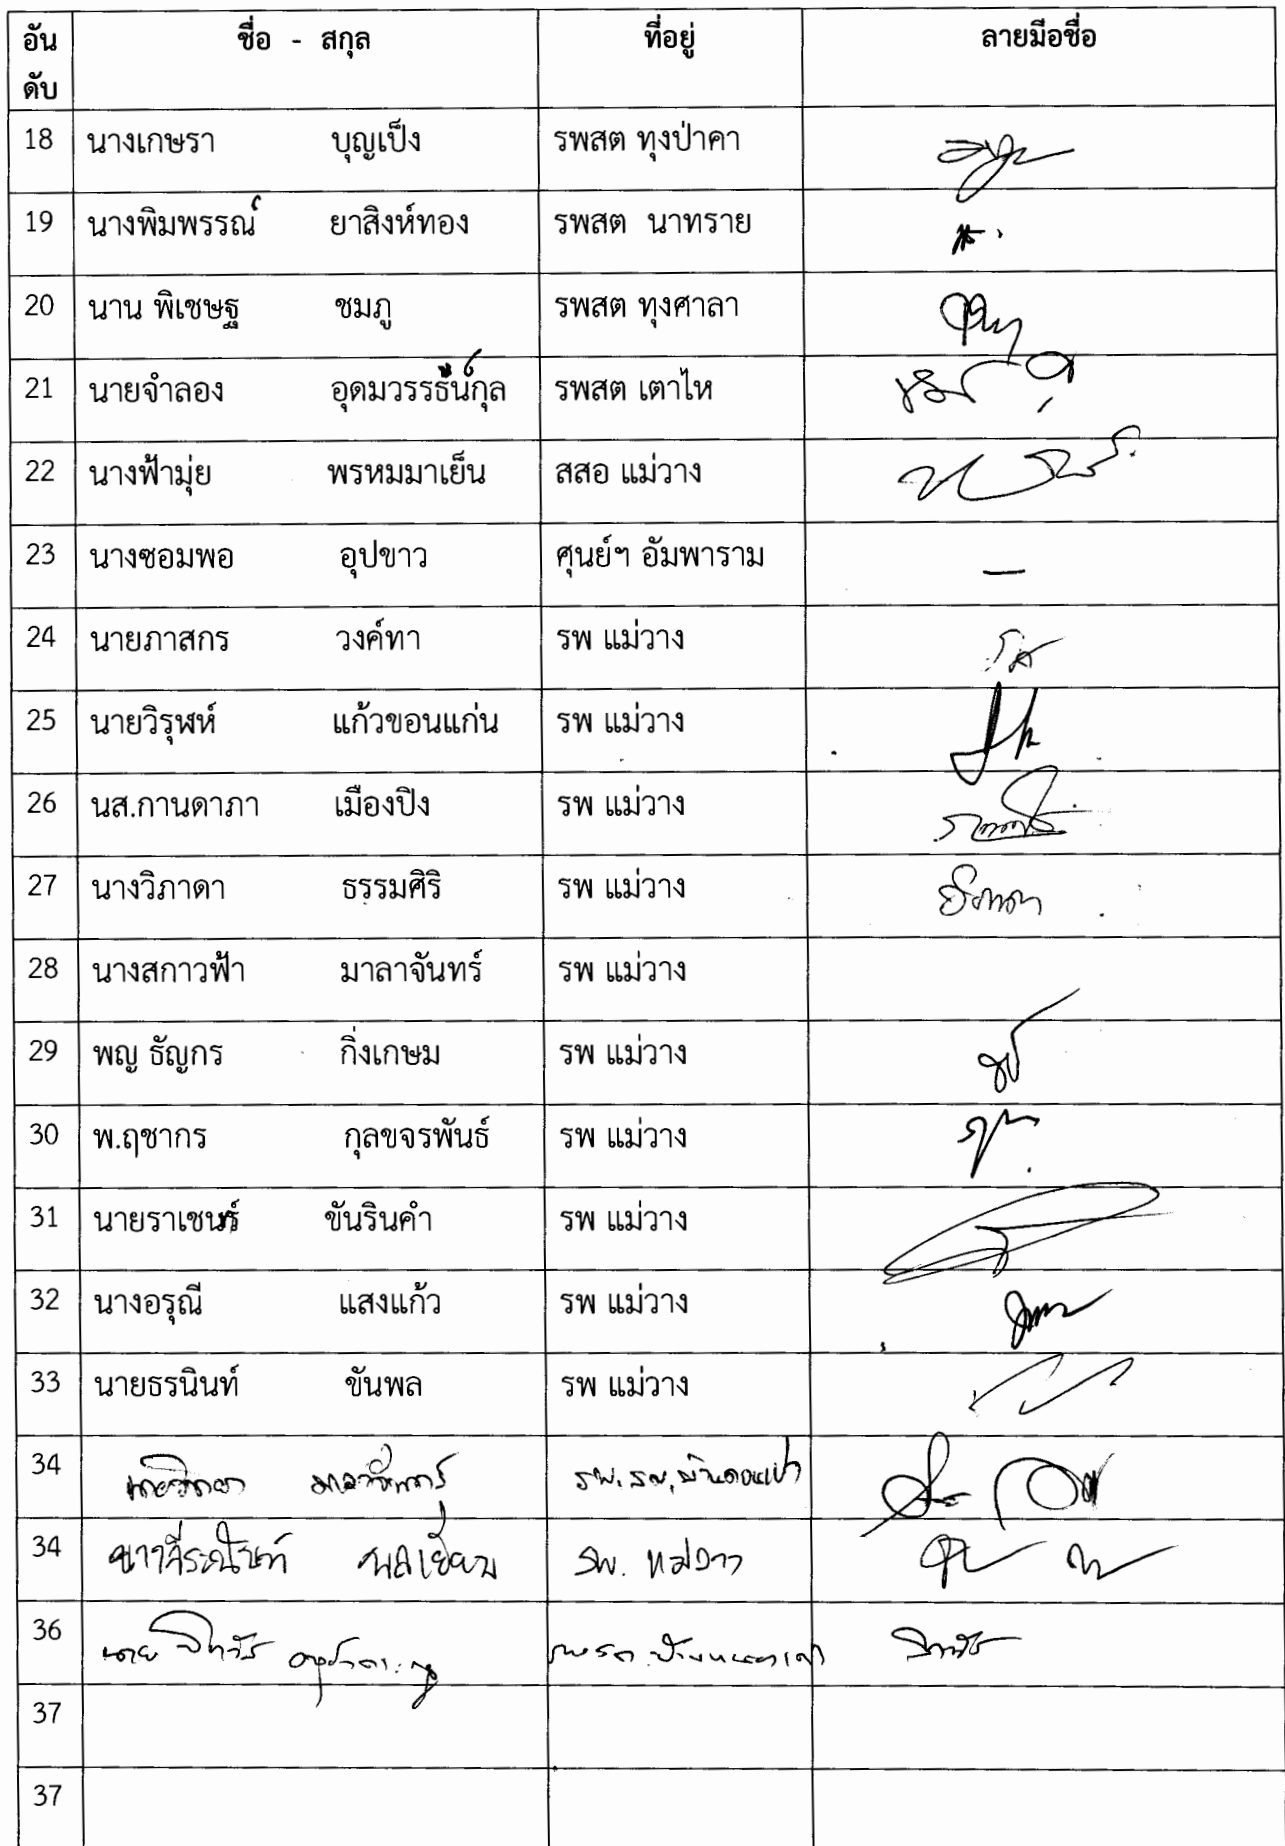 อันดับ ชื่อ - สกุล ที่อยู่ ลายมือชื่อ
18 นางเกษรา บุญเป็ง รพสต ทุงป่าคา
19 นางพิมพรรณ์ ยาสิงห์ทอง รพสต นาทราย
20 นาน พิเชษฐ ชมภู รพสต ทุงศาลา
21 นายจำลอง อุดมวรรธน์กุล รพสต เตาไห
22 นางฟ้ามุ่ย พรหมมาเย็น สสอ แม่วาง
23 นางซอมพอ อุปขาว ศุนย์ฯ อัมพาราม –
24 นายภาสกร วงค์ทา รพ แม่วาง
25 นายวิรุฬห์ แก้วขอนแก่น รพ แม่วาง
26 นส.กานดาภา เมืองปิง รพ แม่วาง
27 นางวิภาดา ธรรมศิริ รพ แม่วาง วิภาดา
28 นางสกาวฟ้า มาลาจันทร์ รพ แม่วาง
29 พญ ธัญกร กิ่งเกษม รพ แม่วาง
30 พ.ฤชากร กุลขจรพันธ์ รพ แม่วาง
31 นายราเชนร์ ขันรินคำ รพ แม่วาง
32 นางอรุณี แสงแก้ว รพ แม่วาง
33 นายธรนินท์ ขันพล รพ แม่วาง
34 มาลาจันทร์ รพ.สต.บ้านดอนเปา
34 รพ. แม่วาง
36 นาย
37
37